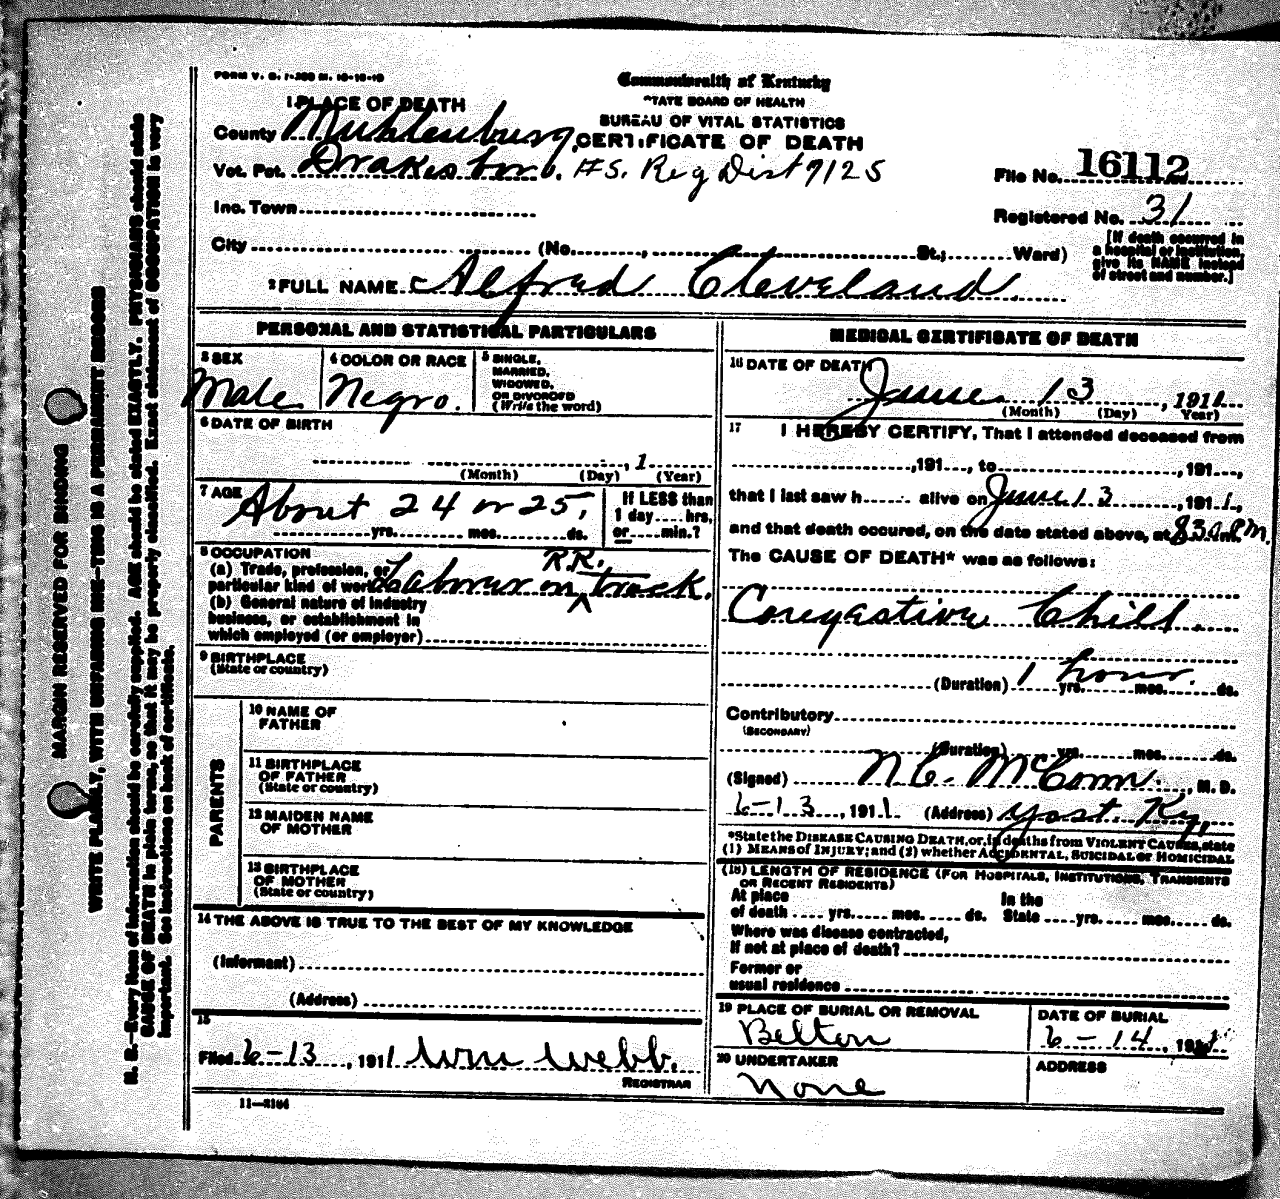 FORM V. S. 1-200 M. 10-10-10
Commonwealth of Kentucky
STATE BOARD OF HEALTH
BUREAU OF VITAL STATISTICS
CERTIFICATE OF DEATH
1 PLACE OF DEATH
County Muhlenburg,
Vot. Pct. Drakesboro. #S. Reg Dist 7125
File No. 16112
Inc. Town
Registered No. 31
City (No. , St.; Ward)
[If death occurred in
a hospital or institution,
give its NAME instead
of street and number.]
2 FULL NAME Alfred Cleveland.
PERSONAL AND STATISTICAL PARTICULARS
3 SEX
Male
4 COLOR OR RACE
Negro.
5 SINGLE,
MARRIED,
WIDOWED,
OR DIVORCED
(Write the word)
6 DATE OF BIRTH
, 1
(Month) (Day) (Year)
7 AGE
About 24 or 25.
yrs. mos. ds.
If LESS than
1 day .... hrs,
or .... min.?
8 OCCUPATION
(a) Trade, profession, or
particular kind of work Laborer on R.R. track.
(b) General nature of industry
business, or establishment in
which employed (or employer)
9 BIRTHPLACE
(State or country)
PARENTS
10 NAME OF
FATHER
11 BIRTHPLACE
OF FATHER
(State or country)
12 MAIDEN NAME
OF MOTHER
13 BIRTHPLACE
OF MOTHER
(State or country)
14 THE ABOVE IS TRUE TO THE BEST OF MY KNOWLEDGE
(Informant)
(Address)
15
Filed 6-13, 1911 Wm Webb.
REGISTRAR
11-3164
MEDICAL CERTIFICATE OF DEATH
16 DATE OF DEATH
June 13, 1911
(Month) (Day) Year)
17 I HEREBY CERTIFY, That I attended deceased from
,191 , to ,191 ,
that I last saw h alive on June 13 ,191 1,
and that death occured, on the date stated above, at 8 30 P.M.
The CAUSE OF DEATH* was as follows:
Congestive Chill.
(Duration) 1 hour. yrs. mos. ds.
Contributory
(SECONDARY)
(Duration) yrs. mos. ds.
(Signed) N. C. McConn., M. D.
6-13, 1911 (Address) Yost Ky,
*State the DISEASE CAUSING DEATH, or, in deaths from VIOLENT CAUSES, state
(1) MEANS of INJURY; and (2) whether ACCIDENTAL, SUICIDAL or HOMICIDAL
(18) LENGTH OF RESIDENCE (FOR HOSPITALS, INSTITUTIONS, TRANSIENTS
OR RECENT RESIDENTS)
At place
of death .... yrs. mos. ds.
In the
State .... yrs. mos. ds.
Where was disease contracted,
if not at place of death?
Former or
usual residence
19 PLACE OF BURIAL OR REMOVAL
Belton
DATE OF BURIAL
6-14, 1911
20 UNDERTAKER
None
ADDRESS
MARGIN RESERVED FOR BINDING
WRITE PLAINLY, WITH UNFADING INK—THIS IS A PERMANENT RECORD
N. B.—Every item of information should be carefully supplied. AGE should be stated EXACTLY. PHYSICIANS should state
CAUSE OF DEATH in plain terms, so that it may be properly classified. Exact statement of OCCUPATION is very
important. See instructions on back of certificate.